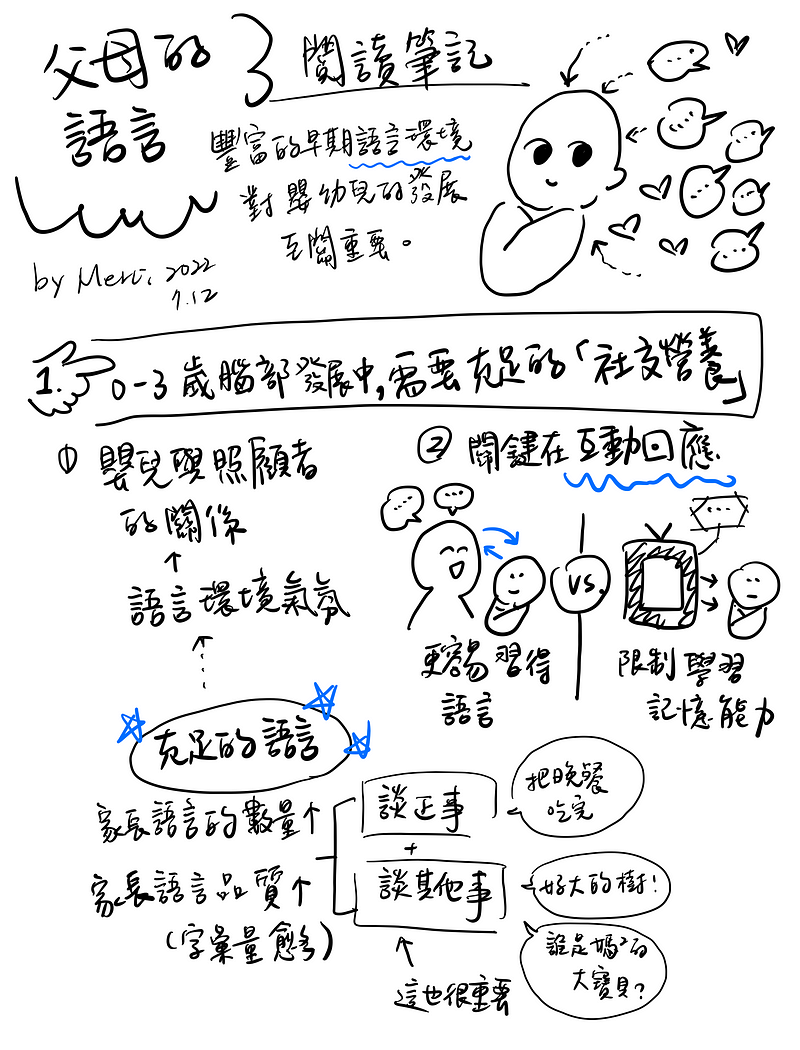 父母的
語言
閱讀筆記
豐富的早期語言環境
對嬰幼兒的發展
至關重要。
by Meru. 2022
7.12
1. 0-3 歲腦部發展中,需要充足的「社交營養」
① 嬰兒與照顧者
的關係
↑
語言環境氣氛
充足的語言
家長語言的數量↑
家長語言品質↑
(字彙量愈多)
② 關鍵在互動回應.
更容易習得
語言
vs.
限制學習
記憶能力
談正事
+
談其他事
↑
這也很重要
把晚餐
吃完
好大的樹!
誰是媽²的
大寶貝?